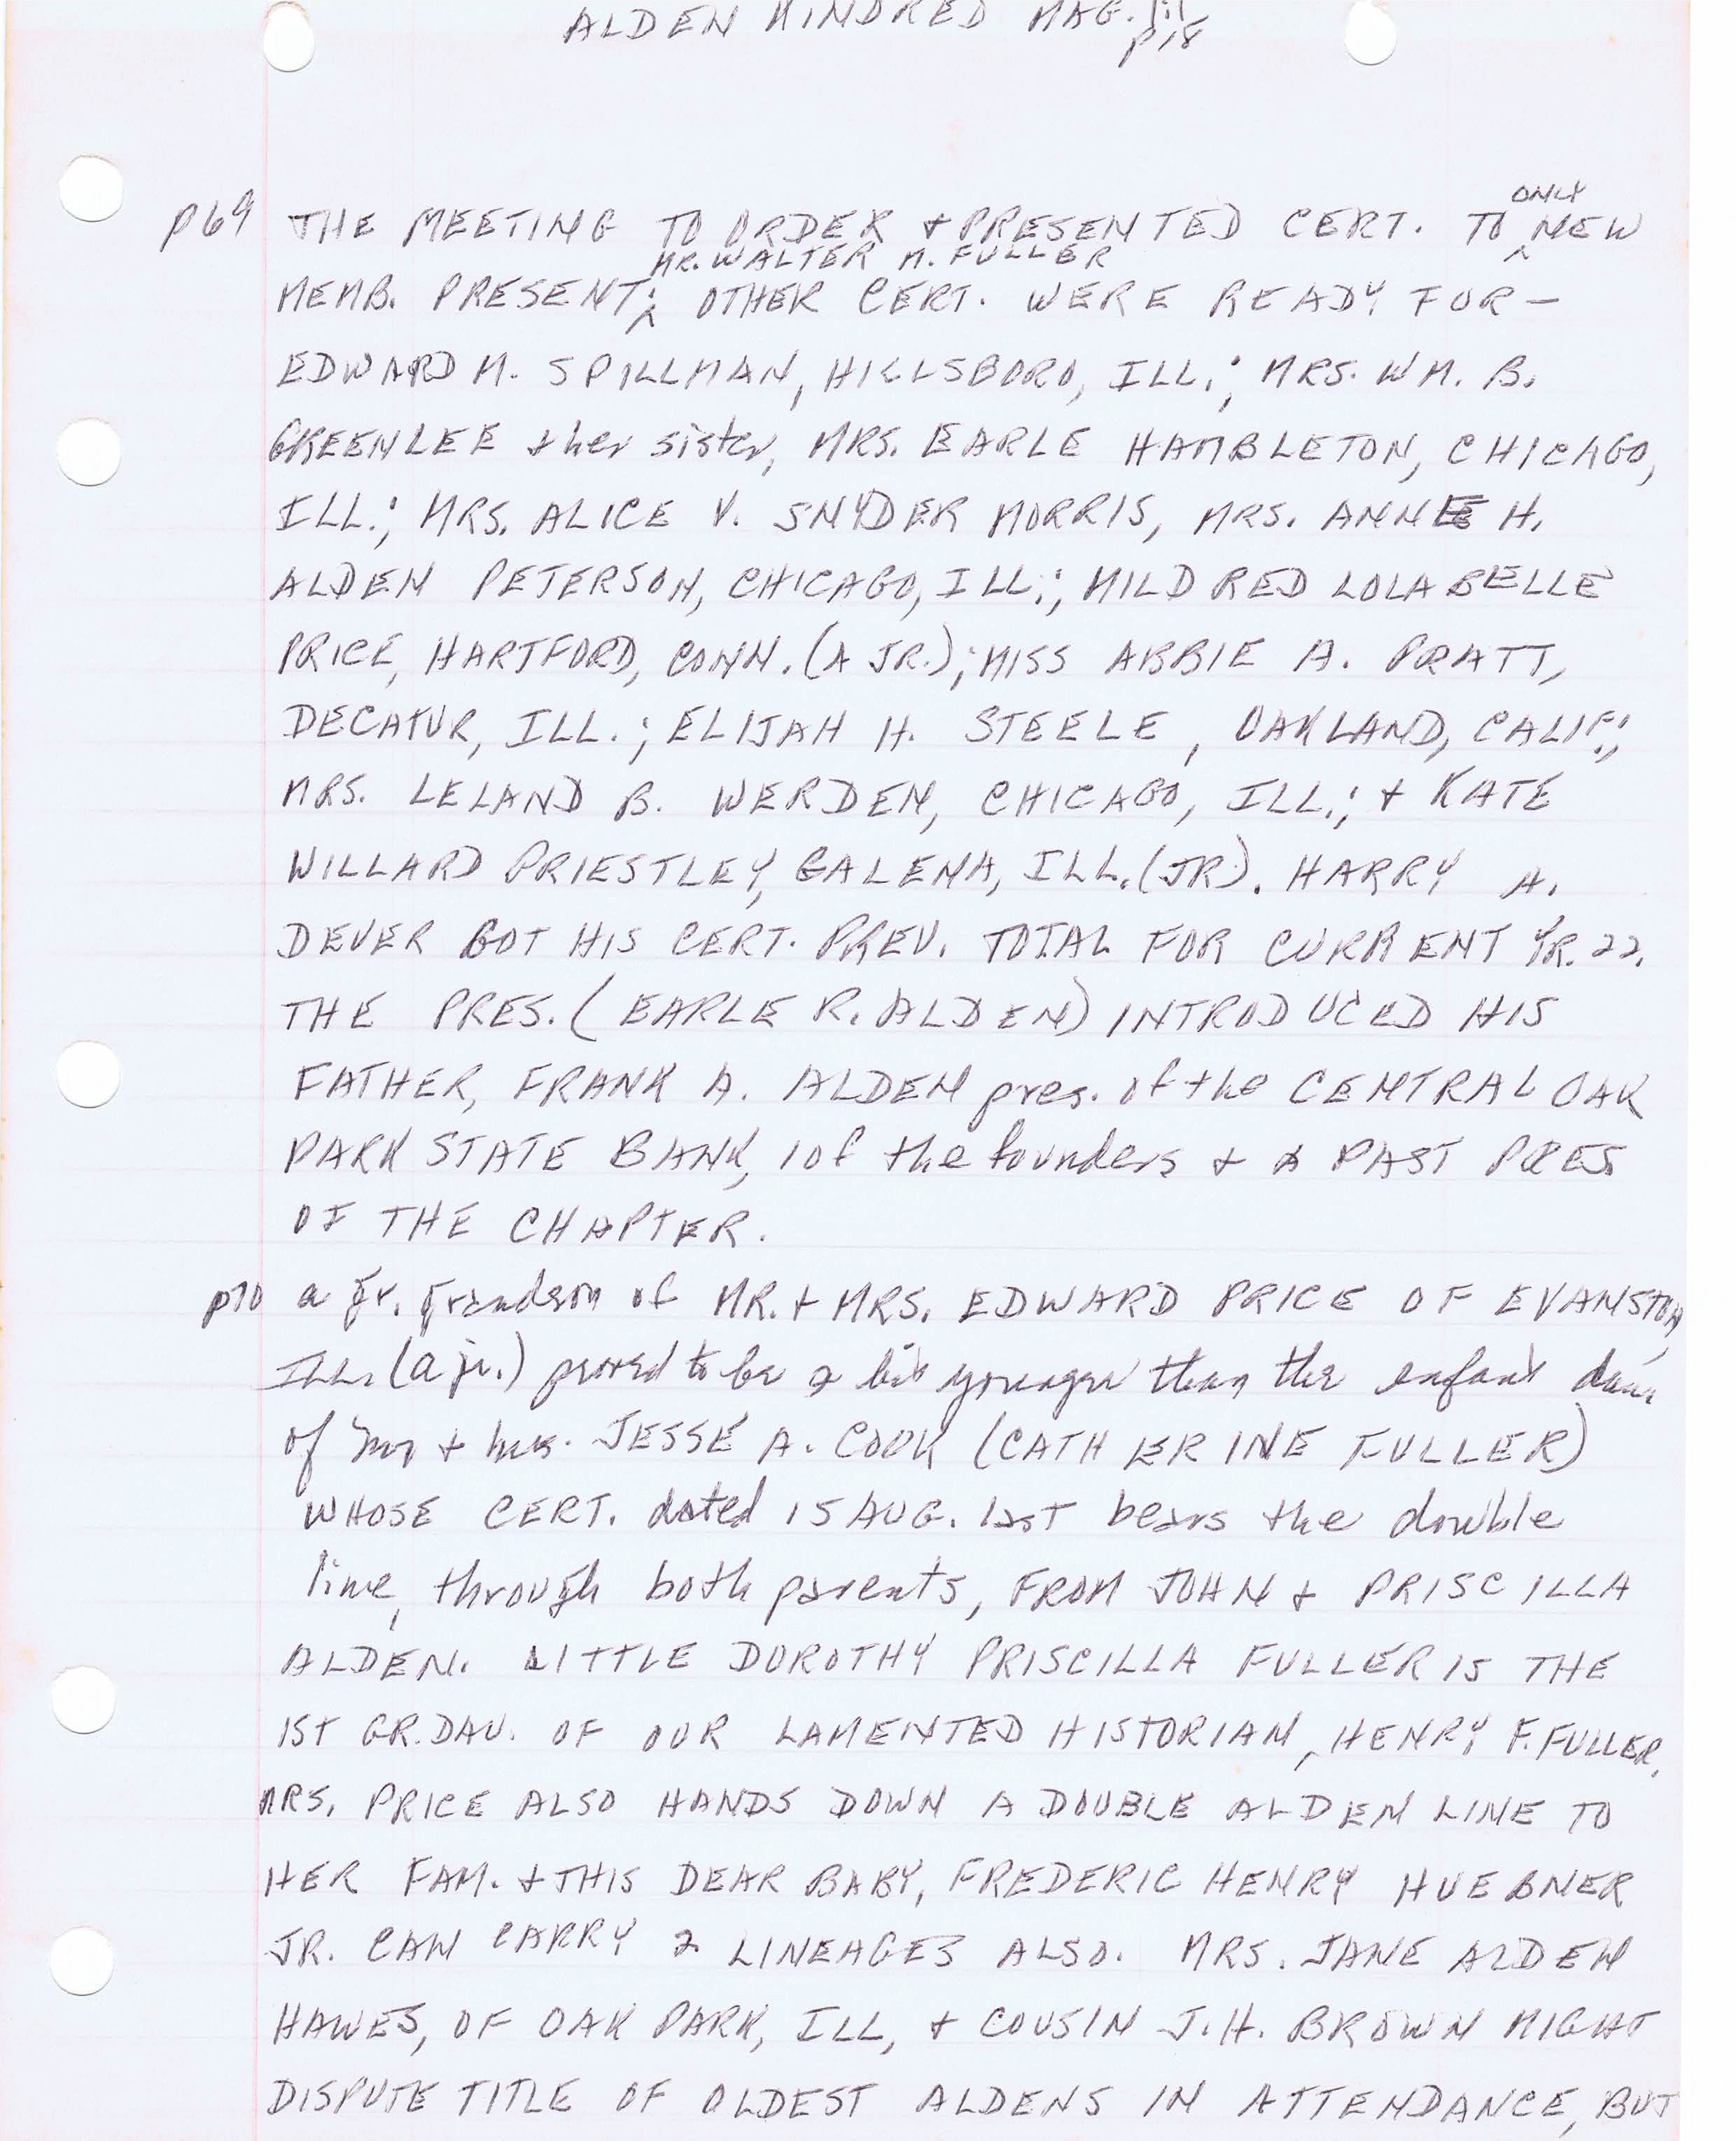 ALDEN KINDRED MAG.
p 18
p69 THE MEETING TO ORDER + PRESENTED CERT. TO ONLY NEW
MEMB. PRESENT, MR. WALTER M. FULLER; OTHER CERT. WERE READY FOR –
EDWARD M. SPILLMAN, HILLSBORO, ILL.; MRS. WM. B.
GREENLEE + her sister, MRS. EARLE HAMBLETON, CHICAGO,
ILL.; MRS. ALICE V. SNYDER MORRIS, MRS. ANNE H.
ALDEN PETERSON, CHICAGO, ILL.; MILDRED LOLABELLE
PRICE, HARTFORD, CONN. (A JR.); MISS ABBIE A. PRATT,
DECATUR, ILL.; ELIJAH H. STEELE, OAKLAND, CALIF.;
MRS. LELAND B. WERDEN, CHICAGO, ILL.; + KATE
WILLARD PRIESTLEY, GALENA, ILL. (JR). HARRY A.
DEVER GOT HIS CERT. PREV. TOTAL FOR CURRENT YR. 22.
THE PRES. (EARLE R. ALDEN) INTRODUCED HIS
FATHER, FRANK A. ALDEN pres. of the CENTRAL OAK
PARK STATE BANK, 1 of the founders + a PAST PRES
OF THE CHAPTER.
p70 a gr. grandson of MR. + MRS. EDWARD PRICE OF EVANSTON,
ILL. (a jr.) proved to be a bit younger than the infant dau.
of Mr + Mrs. JESSE A. COOK (CATHERINE FULLER)
WHOSE CERT. dated 15 AUG. last bears the double
line, through both parents, FROM JOHN + PRISCILLA
ALDEN. LITTLE DOROTHY PRISCILLA FULLER IS THE
1ST GR. DAU. OF OUR LAMENTED HISTORIAN, HENRY F. FULLER.
MRS. PRICE ALSO HANDS DOWN A DOUBLE ALDEN LINE TO
HER FAM. + THIS DEAR BABY, FREDERIC HENRY HUEBNER
JR. CAN CARRY 2 LINEAGES ALSO. MRS. JANE ALDEN
HAWES, OF OAK PARK, ILL, + COUSIN J.H. BROWN MIGHT
DISPUTE TITLE OF OLDEST ALDENS IN ATTENDANCE, BUT